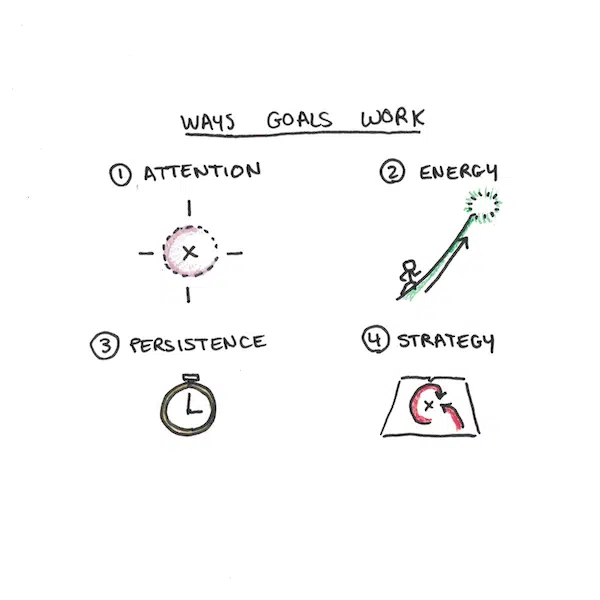 WAYS GOALS WORK
1 ATTENTION
2 ENERGY
3 PERSISTENCE
4 STRATEGY